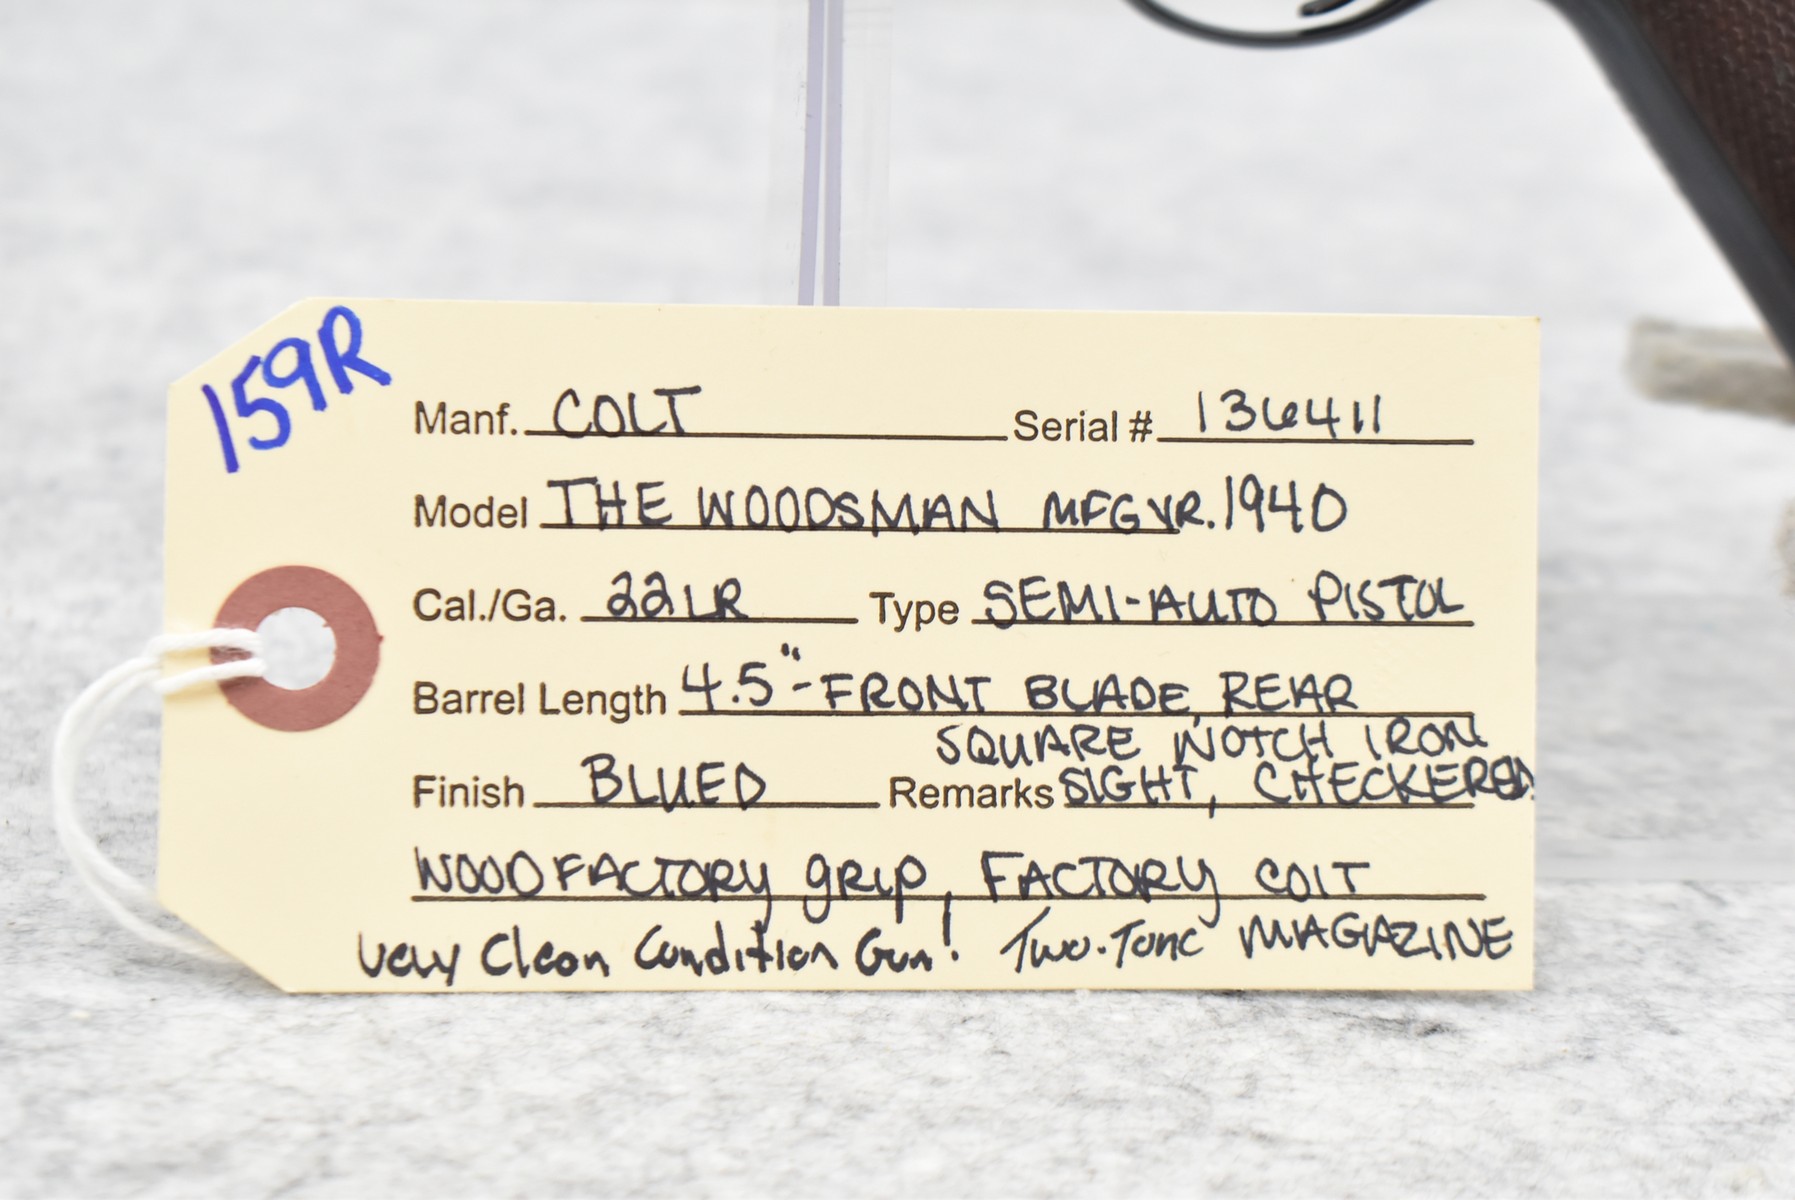 159R
Manf. COLT Serial # 136411
Model THE WOODSMAN MFG YR. 1940
Cal./Ga. 22LR Type SEMI-AUTO PISTOL
Barrel Length 4.5"-FRONT BLADE, REAR
SQUARE NOTCH IRON
Finish BLUED Remarks SIGHT, CHECKERED
WOOD FACTORY GRIP, FACTORY COLT
Very Clean Condition Gun! Two-Tone MAGAZINE